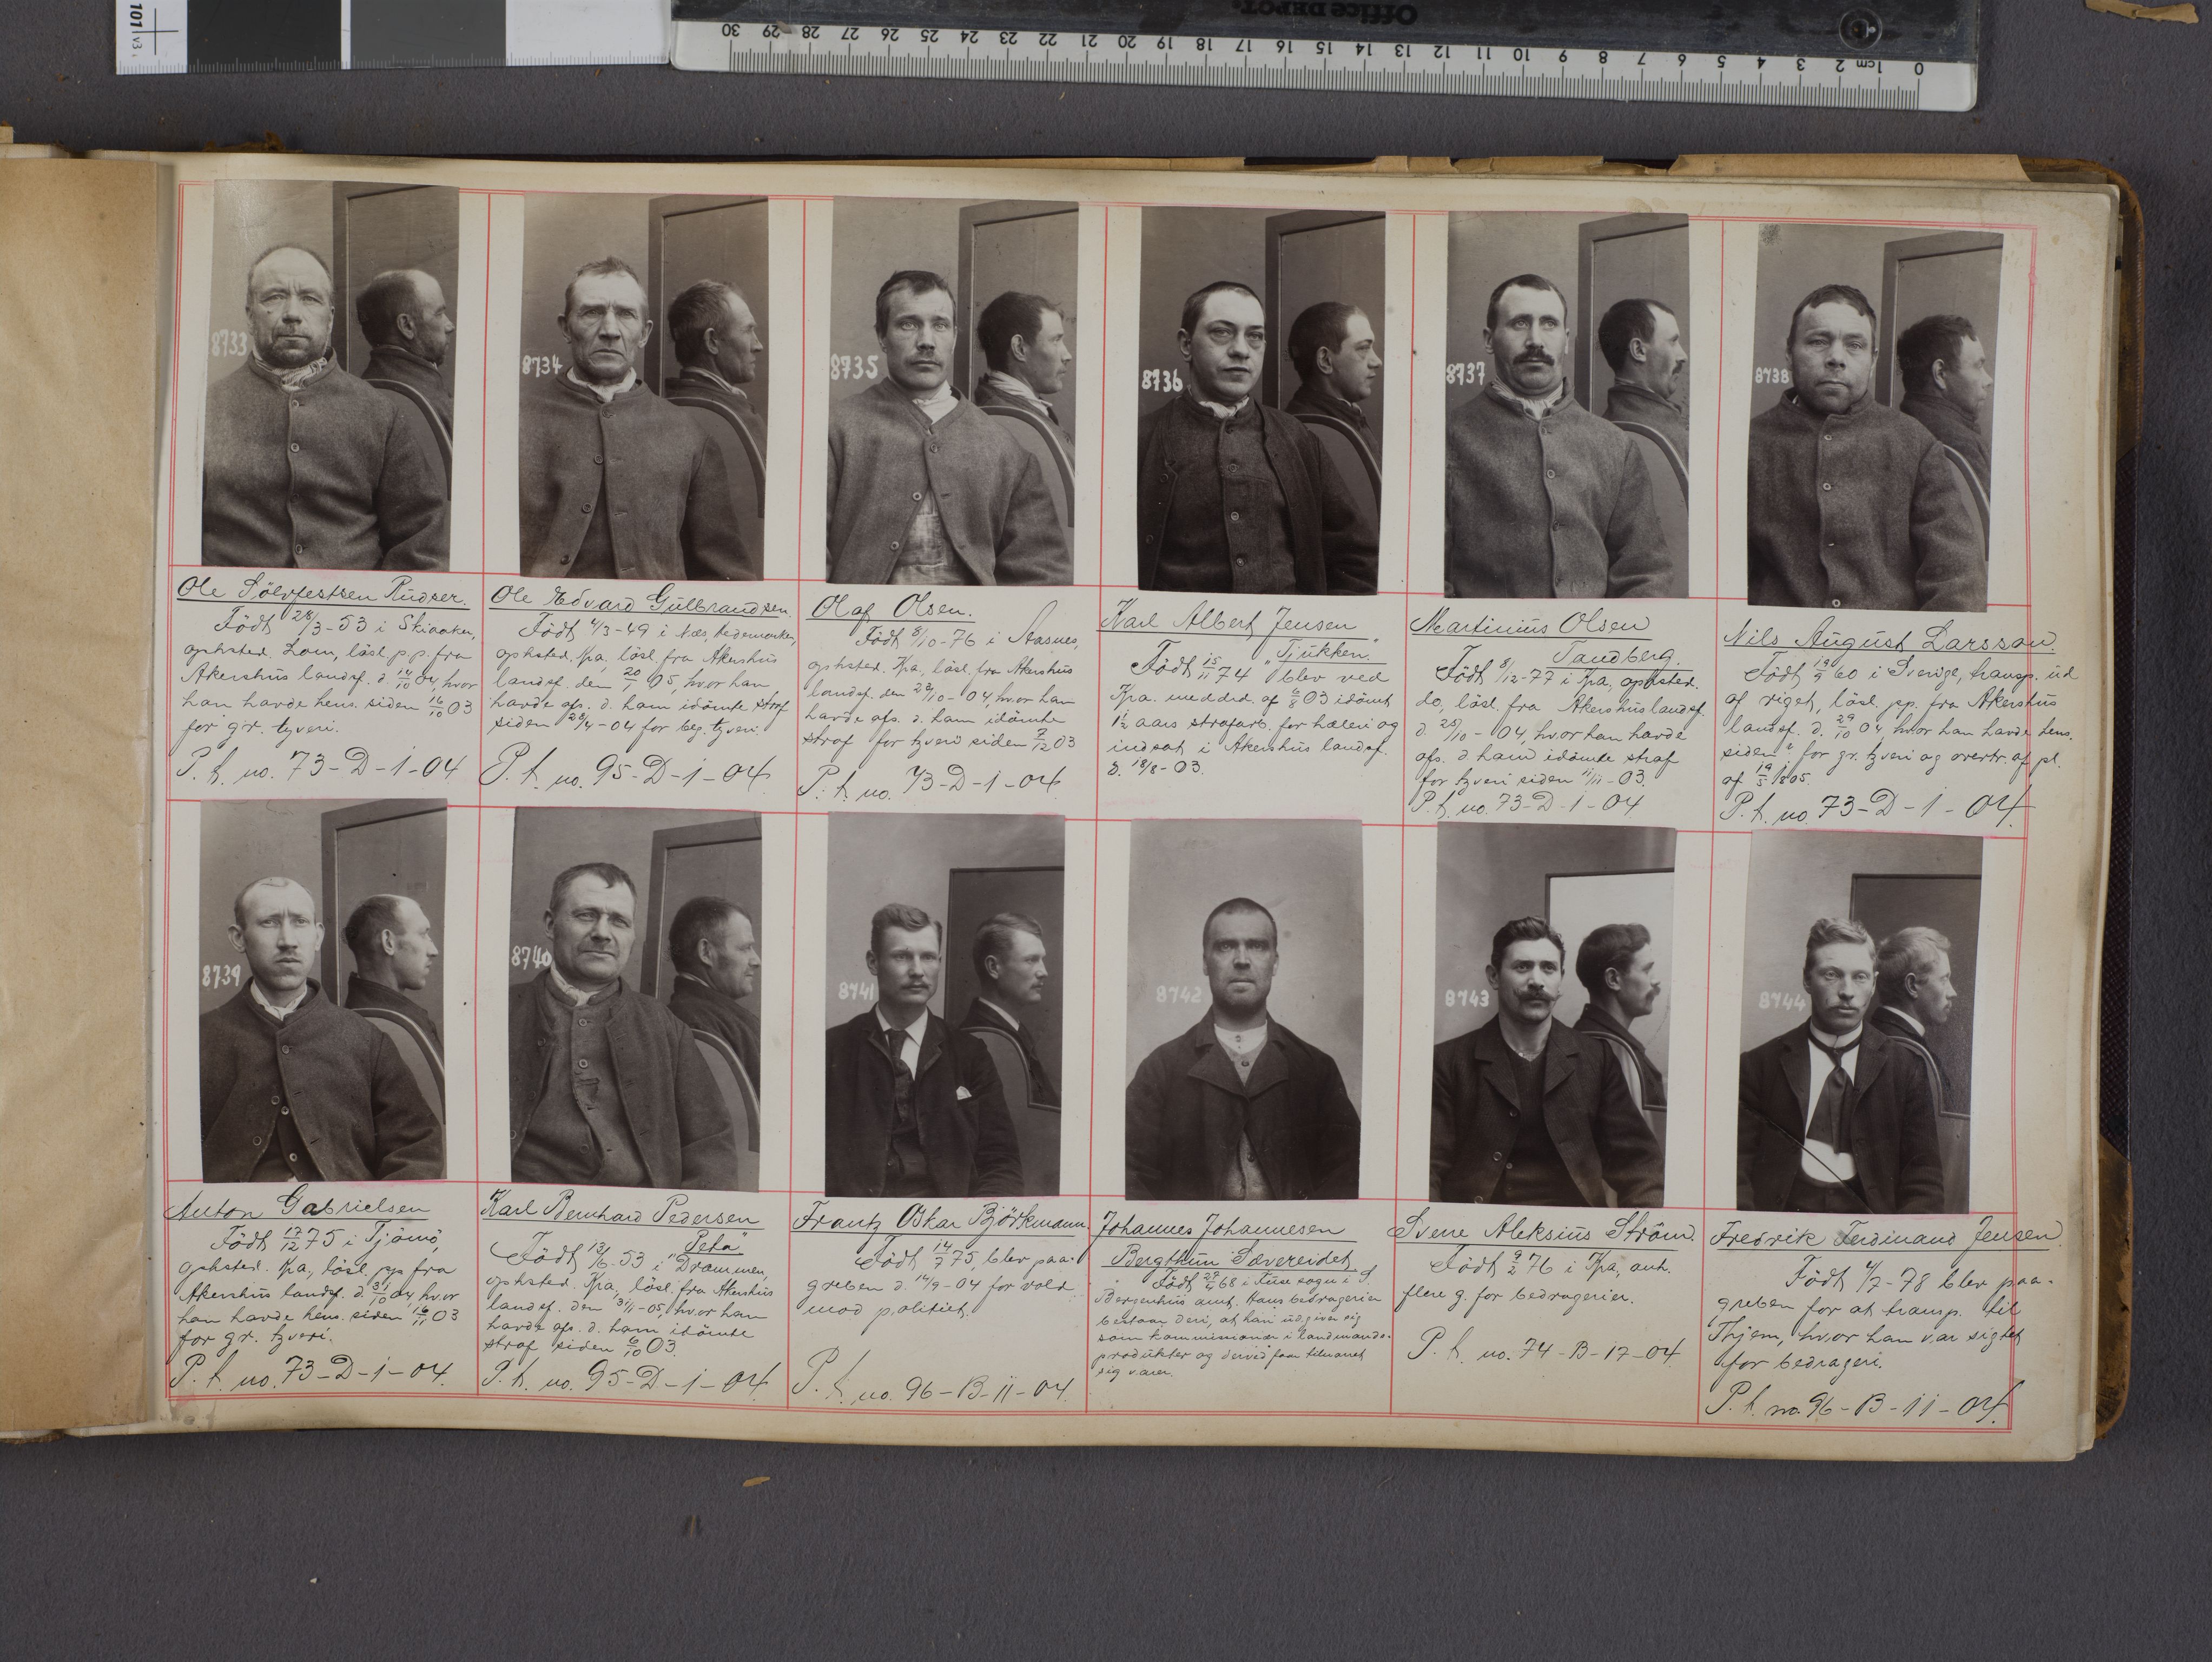 101 v3
Office DEPOT.
30 29 28 27 26 25 24 23 22 21 20 19 18 17 16 15 14 13 12 11 10 9 8 7 6 5 4 3 2 1cm 0
8733
Ole Sölvfestsen Rudser.
Födt 28/3-53 i Skiaaker,
ophsted. Lom, lösl. p.p. fra
Akershus landsf. d. 14/10 04, hvor
han havde hens. siden 16/10 03
for gr. tyveri.
P. h. no. 73-D-1-04
8734
Ole Edvard Gulbrandsen.
Födt 4/3-49 i Næs, Hedemarken,
ophsted. Kra, lösl. fra Akershus
landsf. den 20/1 05, hvor han
havde afs. d. ham idömte straf
siden 28/4-04 for beg. tyveri.
P. h. no. 95-D-1-04
8735
Olaf Olsen.
Födt 8/10-76 i Aasnes,
ophsted. Kra, lösl. fra Akershus
landsf. den 22/10-04, hvor han
havde afs. d. ham idömte
straf for tyveri siden 7/12 03
P. h. no. 73-D-1-04
8736
Karl Albert Jensen
"Tjukken."
Födt 15/11 74 blev ved
Kra. meddrd. af 6/8 03 idömt
1 1/2 aars strafarb. for hæleri og
indsat i Akershus landsf.
d. 18/8-03.
8737
Martinius Olsen
Sandberg.
Födt 8/12-77 i Kra, ophsted.
do, lösl. fra Akershus landsf.
d. 25/10-04, hvor han havde
afs. d. ham idömte straf
for tyveri siden 11/11-03.
P. h. no. 73-D-1-04
8738
Nils August Larsson.
Födt 19/9 60 i Sverige, transp. ud
af riget, lösl. pp. fra Akershus
landsf. d. 29/10 04, hvor han havde hens.
siden for gr. tyveri og overtr. af pl.
af 19/5 1805.
P. h. no. 73-D-1-04
8739
Anton Gabrielsen
Födt 17/12 75 i Tjömö,
ophsted. Kra., lösl. pp fra
Akershus landsf. d. 31/10 04, hvor
han havde hens. siden 16/11 03
for gr. tyveri.
P. h. no. 73-D-1-04.
8740
Karl Bernhard Pedersen
"Peta"
Födt 13/6-53 i Drammen,
ophsted. Kra, lösl. fra Akershus
landsf. den 31/1-05, hvor han
havde afs. d. ham idömte
straf siden 6/10 03.
P. h. no. 95-D-1-04
8741
Frantz Oskar Björkmann.
Födt 14/7 75, blev paa-
greben d. 14/9-04 for vold
mod politiet.
P. h. no. 96-B-11-04
8742
Johannes Johannesen
Bergthun Sævereidet.
Födt 27/4 68 i Fuse sogn i S.
Bergenhus amt. Hans bedragerier
bestaar deri, at han udgiver sig
som kommissionær i landmands-
produkter og derved faar tilvendt
sig varer.
8743
Sverre Aleksius Ström.
Födt 9/2 76 i Kra, anh.
flere g. for bedragerier.
P. h. no. 74-B-17-04.
8744
Fredrik Ferdinand Jensen.
Födt 4/7-78 blev paa-
greben for at transp. til
Thjem, hvor han var sigtet
for bedrageri.
P. h. no. 96-B-11-04.